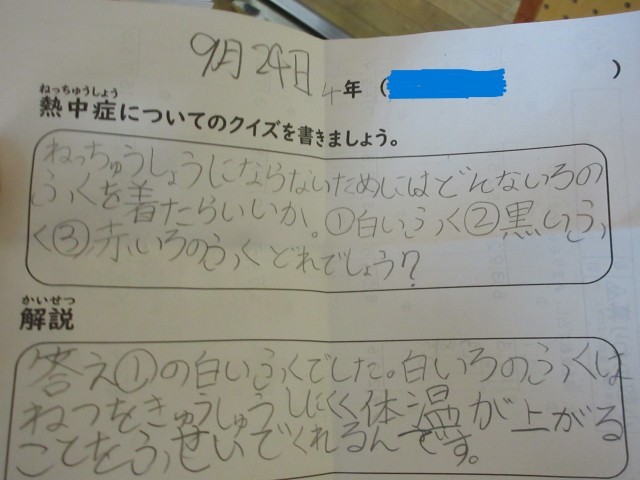 9月24日
4年（　　　）
ねっちゅうしょう
熱中症についてのクイズを書きましょう。
ねっちゅうしょうにならないためにはどんないろの
ふくを着たらいいか。①白いふく②黒いふ
く③赤いろのふくどれでしょう？
かいせつ
解説
答え①の白いふくでした。白いろのふくは
ねつをきゅうしゅうしにくく体温が上がる
ことをふせいでくれるんです。